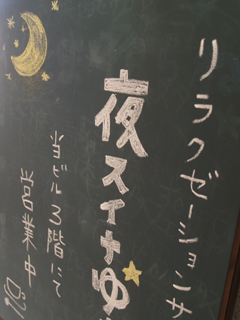 リラクゼーションサ
夜スイナゆ
当ビル3階にて
営業中